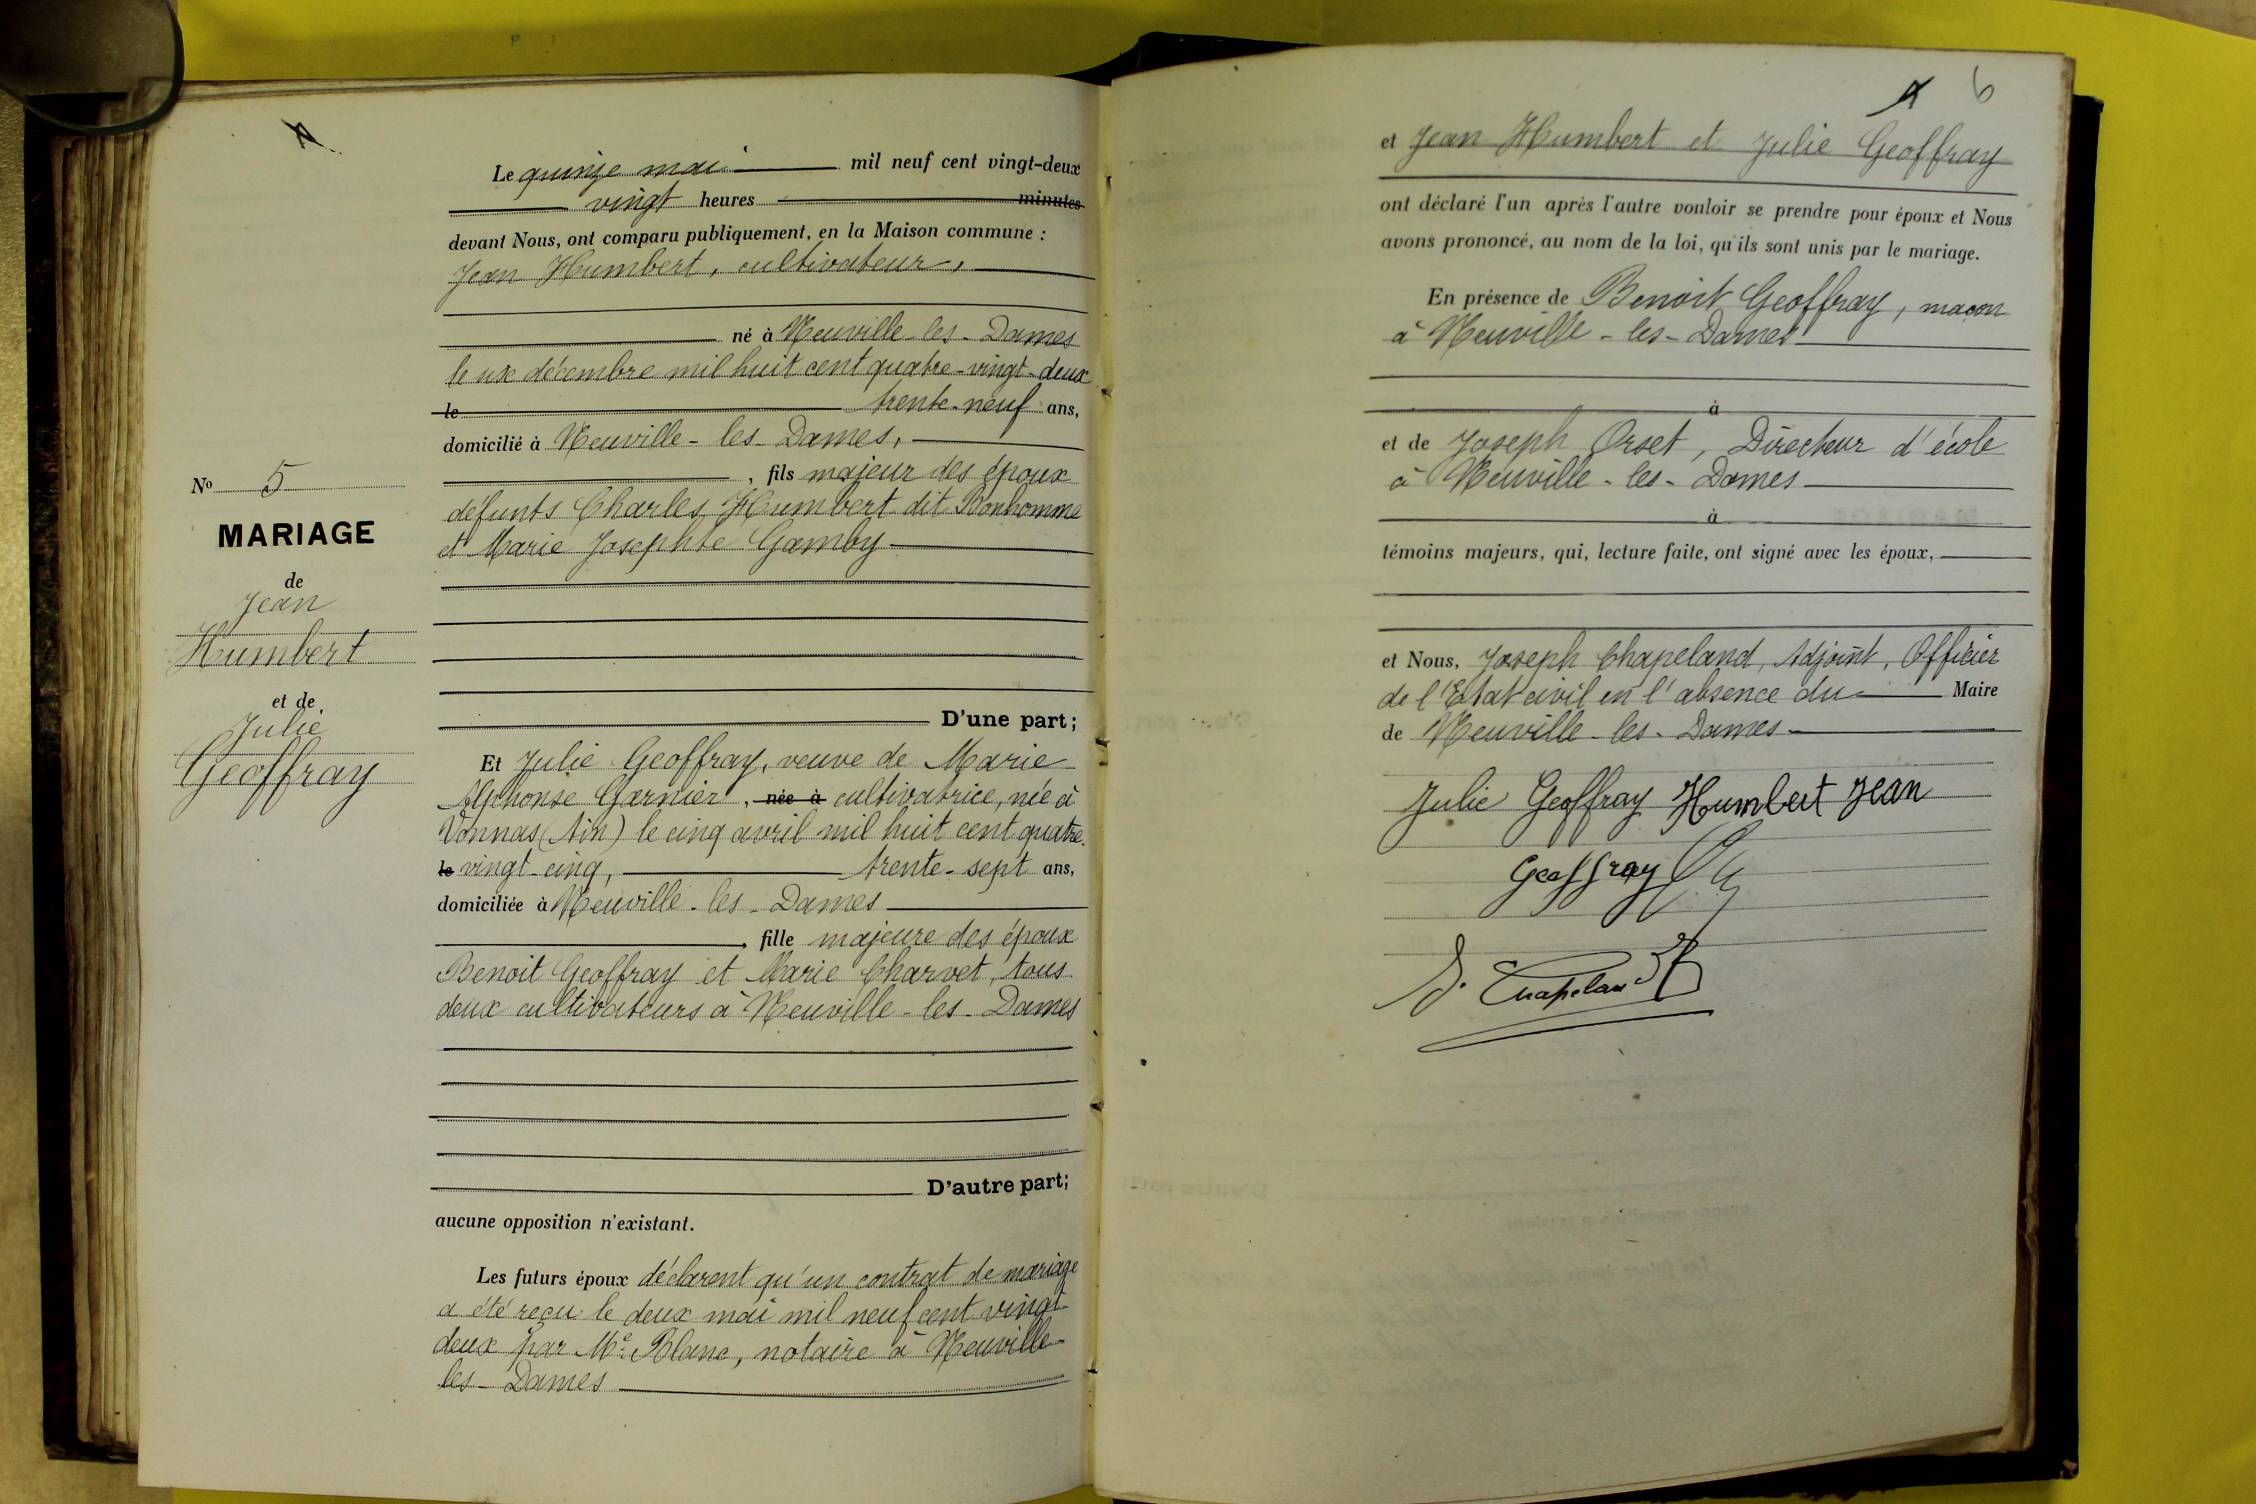 Le quinze mai mil neuf cent vingt-deux
vingt heures minutes
devant Nous, ont comparu publiquement, en la Maison commune :
Jean Humbert, cultivateur,
né à Neuville-les-Dames
le six décembre mil huit cent quatre-vingt-deux
le trente-neuf ans,
domicilié à Neuville-les-Dames,
, fils majeur des époux
défunts Charles Humbert dit Bonhomme
et Marie Josephte Gamby
D'une part;
Et Julie Geoffray, veuve de Marie
Alphonse Garnier, née à cultivatrice, née à
Vonnas (Ain) le cinq avril mil huit cent quatre-
le vingt-cinq, trente-sept ans,
domiciliée à Neuville-les-Dames
, fille majeure des époux
Benoit Geoffray et Marie Charvet, tous
deux cultivateurs à Neuville-les-Dames
D'autre part;
aucune opposition n'existant.
Les futurs époux déclarent qu'un contrat de mariage
a été reçu le deux mai mil neuf cent vingt
deux par Me Blanc, notaire à Neuville
les-Dames
No 5
MARIAGE
de
Jean
Humbert
et de
Julie
Geoffray
6
et Jean Humbert et Julie Geoffray
ont déclaré l'un après l'autre vouloir se prendre pour époux et Nous
avons prononcé, au nom de la loi, qu'ils sont unis par le mariage.
En présence de Benoit Geoffray, maçon
à Neuville-les-Dames
à
et de Joseph Orset, Directeur d'école
à Neuville-les-Dames
à
témoins majeurs, qui, lecture faite, ont signé avec les époux,
et Nous, Joseph Chapeland, Adjoint, Officier
de l'Etat civil en l'absence du Maire
de Neuville-les-Dames
Julie Geoffray Humbert Jean
Geoffray
J. Chapeland